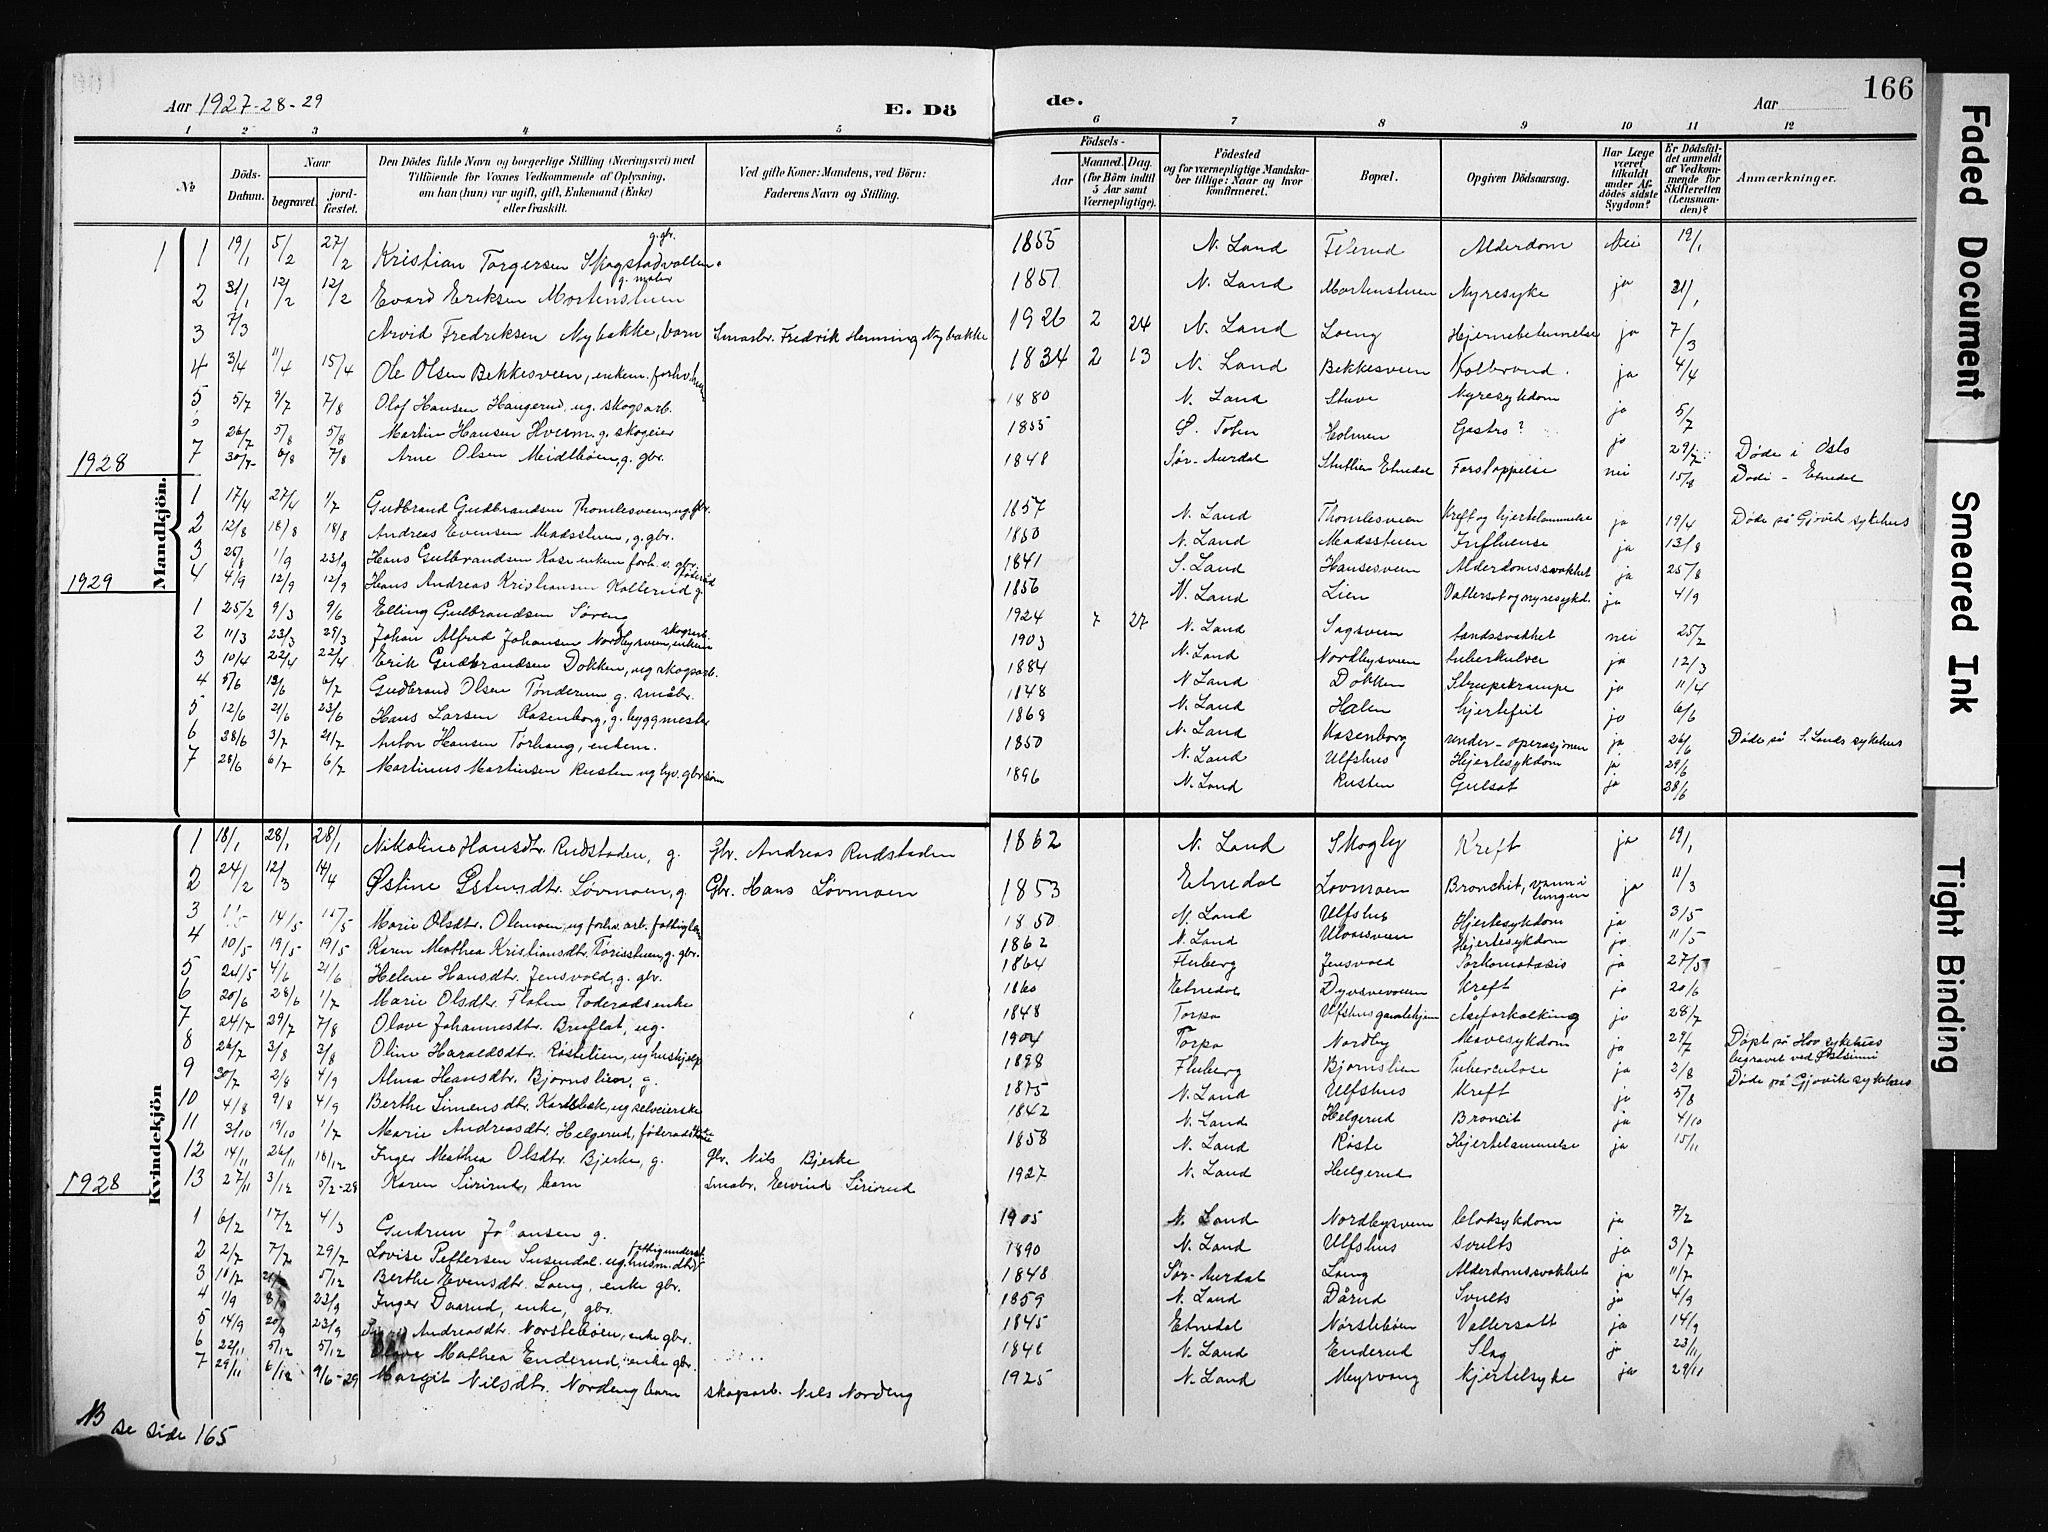 Aar 1927-28-29
E. Dö de.
Aar
166
1 2 3 4 5 6 7 8 9 10 11 12
№
Döds-Datum.
Naar
begravet.
jordfæstet.
Den Dödes fulde Navn og borgerlige Stilling (Næringsvei) med
Tilföiende for Voxnes Vedkommende af Oplysning,
om han (hun) var ugift, gift, Enkemand (Enke)
eller fraskilt.
Ved gifte Koner: Mandens, ved Börn:
Faderens Navn og Stilling.
Födsels-
Aar
Maaned. Dag.
(for Börn indtil
5 Aar samt
Værnepligtige).
Födested
og for værnepligtige Mandskaber tillige: Naar og hvor
konfirmeret.
Bopæl.
Opgiven Dödsaarsag.
Har Læge
været
tilkaldt
under Afdödes sidste
Sygdom?
Er Dödsfaldet anmeldt
af Vedkommende for
Skifteretten
(Lensmanden)?
Anmærkninger.
Mandkjön.
1 1 19/1 5/2 27/2 Kristian Torgersen Skogstadvollen g. gbr. 1855 N. Land Alderdom Nei 19/1
2 31/1 12/2 12/2 Evard Eriksen Mortenstuen g. maler 1851 N. Land Mortenstuen Nyresyke ja 31/1
3 7/3 Arvid Fredriksen Nybakke, barn Smaabr. Fredrik Henning Nybakke 1926 2 24 N. Land Loeng Hjernebetennelse ja 7/3
4 3/4 11/4 15/4 Ole Olsen Bekkesveen, enkem. forhv. 1834 2 13 N. Land Bekkesveen Kolbrand. ja 4/4
5 5/7 9/7 7/8 Olof Hansen Haugerud, ug. skogsarb. 1880 N. Land Stuve Nyresykdom ja 5/7
26/7 5/8 5/8 Martin Hansen g. skogeier 1855 Ø. Toten Holmen Gastro? ja 29/7 Døde i Oslo
7 30/7 6/8 7/8 Arne Olsen Meidtbøen, g. gbr. 1848 Sør-Aurdal Etnedal Forstoppelse nei 15/8 Døde - Etnedal
1928
1 17/4 27/4 1/7 Gudbrand Gudbrandsen Thomlesveen, ug. gbr. 1857 N. Land Thomlesveen Kreft og hjertelammelse ja 19/4 Døde på Gjøvik sykehus
2 12/8 18/8 18/8 Andreas Evensen Madsstuen, g. gbr. 1850 N. Land Madsstuen Influense ja 13/8
3 25/8 1/9 23/9 Hans Gulbrandsen enkem. forh. v. gbr. 1841 S. Land Hansesveen Alderdomssvakhet ja 25/8
4 4/9 12/9 12/9 Hans Andreas Kristiansen Kollerud g. føderåd 1856 N. Land Lien Vattersot og nyresykd. ja 4/9
1929
1 25/2 9/3 9/6 Elling Gulbrandsen 1924 7 27 N. Land Sagsveen Landssvakhet nei 25/2
2 11/3 23/3 29/3 Johan Alfred Johansen Nordbysveen, enkem skogsarb. 1903 N. Land Nordbysveen tuberkulose ja 12/3
3 10/4 22/4 22/4 Erik Gudbrandsen Dokken, ug skogsarb. 1884 N. Land Dokken Strupekrampe ja 11/4
4 5/6 13/6 6/7 Gudbrand Olsen Tønderum g. småbr. 1848 N. Land Halen hjertefeil ja 6/6
5 12/6 21/6 23/6 Hans Larsen Rosenborg, g. byggmester 1868 N. Land Rosenborg under-operasjonen ja 26/6 Døde på S. Lands sykehus
6 28/6 3/7 21/7 Anton Hansen Tørhaug, enkem. 1850 N. Land Ulfshus Hjertesykdom ja 29/6
7 28/6 6/7 6/7 Martinus Martinsen Rusten ug tyv. gbr sønn 1896 N. Land Rusten Gulsot ja 28/6
Kvindekjön
1 18/1 28/1 28/1 Nikoline Hansdtr. Rudstaden, g. Gbr. Andreas Rudstaden 1862 N. Land Skogby Kreft ja 19/1
2 24/2 12/3 14/4 Østine Østensdtr. Løvmoen, g. Gbr. Hans Løvmoen 1853 Etnedal Lovmoen Bronchit, vann i lungen ja 11/3
3 14/5 15/5 Marie Olsdtr. Olemoen, ug forhv. arb. fattiglem 1850 N. Land Ulfshus Hjertesykdom ja 3/5
4 10/5 19/5 19/5 Karen Mathea Kristiansdtr. Torisstuen, g. gbr. 1862 N. Land Hjertesykdom ja 11/5
5 24/5 4/6 21/6 Helene Hansdtr. Jensvold, g. gbr. 1864 Fluberg Jensvold ja 27/5
6 20/6 28/6 1/7 Marie Olsdtr. Flaten Føderadsenke 1860 Etnedal Kreft ja 20/6
7 24/7 29/7 7/8 Olave Johannesdtr. Bruflat, ug. 1848 Torpa Ulfshus gamlehjem Åreforkalkning ja 28/7
8 26/7 3/8 3/8 Oline Haraldsdtr. Røstelien, ug hushjelp 1904 Torpa Nordby Mavesykdom ja 29/7 Døpt på Hov sykehus begravet ved Østsinni
9 30/7 2/8 4/9 Alma Hansdtr. Bjørnslien, g. 1898 Fluberg Bjørnslien Tuberculose ja 2/8 Døde på Gjøvik sykehus
10 4/8 9/8 4/9 Berthe Simensdtr. Karlsbak, ug selveierske 1875 N. Land Ulfshus Kreft ja 5/8
11 3/10 19/10 1/7 Marie Andreasdtr. Helgerud, føderads 1842 N. Land Helgerud Broncit ja 4/10
12 14/11 26/11 18/12 Inger Mathea Olsdtr. Bjerke, g. Gbr. Nils Bjerke 1858 N. Land Røste Hjertelammelse ja 15/11
13 27/11 3/12 5/2-28 Karen Sirirud, barn Smaabr. Eivind Sirirud 1927 N. Land Helgerud
1928
1 6/2 17/2 4/3 Gudrun Johansen g. 1905 N. Land Nordbysveen blodsykdom ja 7/2
2 2/7 7/7 29/7 Lovise Pettersen Susendal ug. husm. dtr. fattigunderst. 1890 N. Land Ulfshus svults ja 3/7
3 10/7 5/12 Berthe Evensdtr. Loeng, enke gbr. 1848 Sør-Aurdal Loeng Alderdomssvakhet ja 11/7
4 1/9 8/9 23/9 Inger Daarud, enke, gbr. 1859 N. Land Dårud Svults ja 4/9
5 14/9 20/9 23/9 Andreasdtr. Norstebøen, enke gbr. 1845 Etnedal Nørstebøen Vattersott ja 14/9
6 22/11 5/12 5/12 Olave Mathea Enderud, enke gbr. 1846 N. Land Enderud Slag ja 23/11
7 29/11 6/12 9/6-29 Margit Nilsdtr. Nordeng barn skogsarb. Nils Nordeng 1925 N. Land Meyrvang Kjertelsyke ja 29/11
NB se side 165
Faded Document
Smeared Ink
Tight Binding